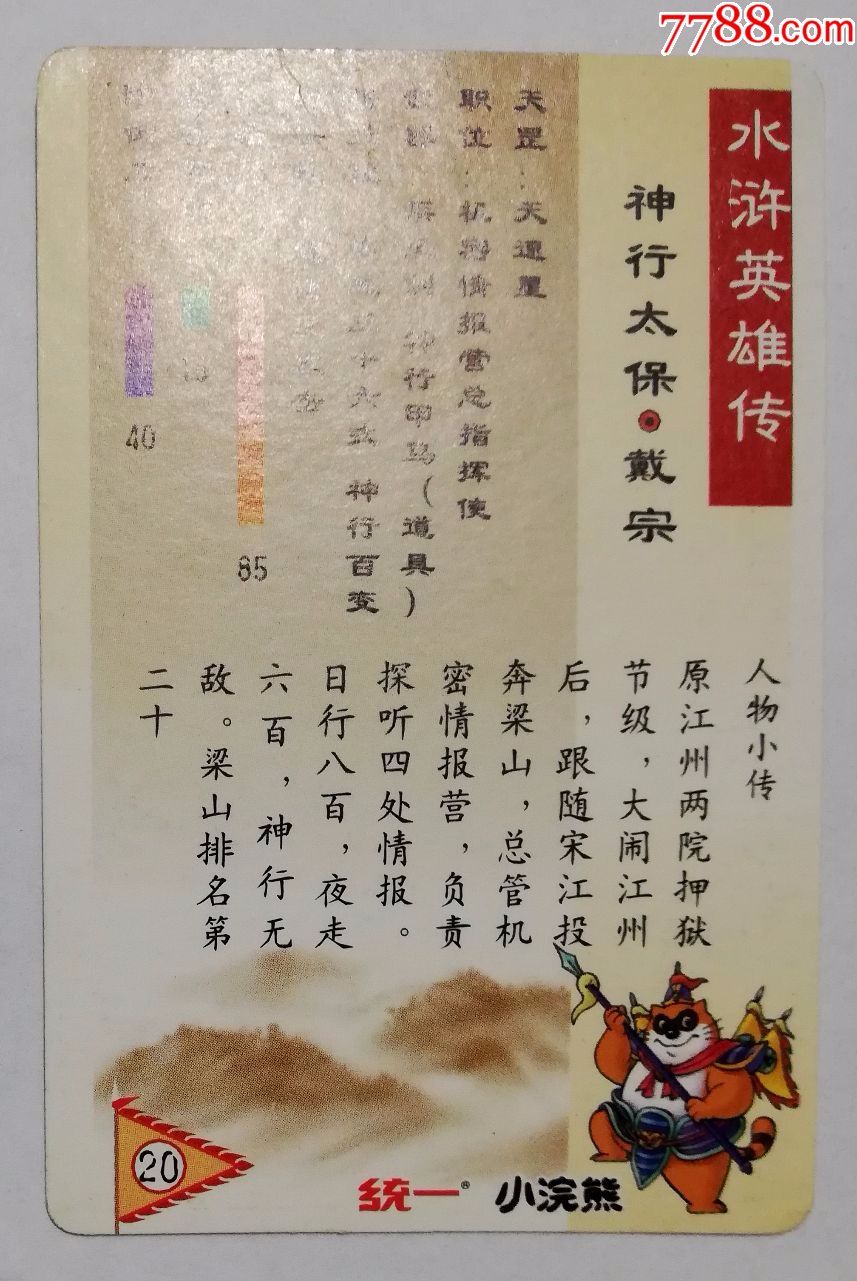 7788.com
水浒英雄传
神行太保·戴宗
天罡：天速星
职位：机密情报营总指挥使
神行甲马(道具)
十六式 神行百变
85
40
人物小传
原江州两院押狱
节级，大闹江州
后，跟随宋江投
奔梁山，总管机
密情报营，负责
探听四处情报。
日行八百，夜走
六百，神行无
敌。梁山排名第
二十
20
统一® 小浣熊